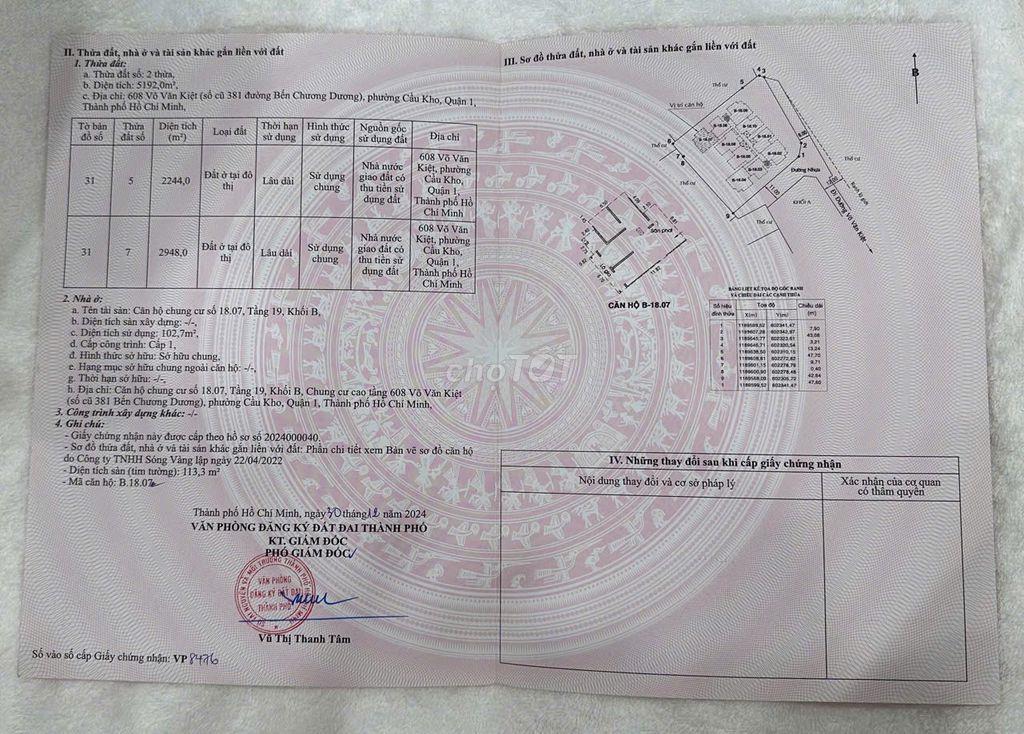 II. Thửa đất, nhà ở và tài sản khác gắn liền với đất
1. Thửa đất:
a. Thửa đất số: 2 thửa,
b. Diện tích: 5192,0m²,
c. Địa chỉ: 608 Võ Văn Kiệt (số cũ 381 đường Bến Chương Dương), phường Cầu Kho, Quận 1,
Thành phố Hồ Chí Minh,
Tờ bản đồ số
Thửa đất số
Diện tích (m²)
Loại đất
Thời hạn sử dụng
Hình thức sử dụng
Nguồn gốc sử dụng đất
Địa chỉ
31
5
2244,0
Đất ở tại đô thị
Lâu dài
Sử dụng chung
Nhà nước giao đất có thu tiền sử dụng đất
608 Võ Văn Kiệt, phường Cầu Kho, Quận 1, Thành phố Hồ Chí Minh
31
7
2948,0
Đất ở tại đô thị
Lâu dài
Sử dụng chung
Nhà nước giao đất có thu tiền sử dụng đất
608 Võ Văn Kiệt, phường Cầu Kho, Quận 1, Thành phố Hồ Chí Minh
2. Nhà ở:
a. Tên tài sản: Căn hộ chung cư số 18.07, Tầng 19, Khối B,
b. Diện tích sàn xây dựng: -/-,
c. Diện tích sử dụng: 102,7m²,
d. Cấp công trình: Cấp 1,
đ. Hình thức sở hữu: Sở hữu chung,
e. Hạng mục sở hữu chung ngoài căn hộ: -/-,
g. Thời hạn sở hữu: -/-,
h. Địa chỉ: Căn hộ chung cư số 18.07, Tầng 19, Khối B, Chung cư cao tầng 608 Võ Văn Kiệt
(số cũ 381 Bến Chương Dương), phường Cầu Kho, Quận 1, Thành phố Hồ Chí Minh,
3. Công trình xây dựng khác: -/-
4. Ghi chú:
- Giấy chứng nhận này được cấp theo hồ sơ số 2024000040.
- Sơ đồ thửa đất, nhà ở và tài sản khác gắn liền với đất: Phần chi tiết xem Bản vẽ sơ đồ căn hộ
do Công ty TNHH Sóng Vàng lập ngày 22/04/2022
- Diện tích sàn (tim tường): 113,3 m²
- Mã căn hộ: B.18.07
Thành phố Hồ Chí Minh, ngày 30 tháng 12 năm 2024
VĂN PHÒNG ĐĂNG KÝ ĐẤT ĐAI THÀNH PHỐ
KT. GIÁM ĐỐC
PHÓ GIÁM ĐỐC
VĂN PHÒNG
ĐĂNG KÝ ĐẤT ĐAI
THÀNH PHỐ
Vũ Thị Thanh Tâm
Số vào sổ cấp Giấy chứng nhận: VP 8476
III. Sơ đồ thửa đất, nhà ở và tài sản khác gắn liền với đất
B
Vị trí căn hộ
Thổ cư
Thổ cư
Thổ cư
Thổ cư
Thổ cư
Đường Nhựa
KHỐI A
Đi Đường Võ Văn Kiệt
Sân phơi
Lô gia
CĂN HỘ B-18.07
BẢNG LIỆT KÊ TỌA ĐỘ GÓC RANH
VÀ CHIỀU DÀI CÁC CẠNH THỬA
Số hiệu đỉnh thửa
Tọa độ
X(m)
Y(m)
Chiều dài (m)
IV. Những thay đổi sau khi cấp giấy chứng nhận
Nội dung thay đổi và cơ sở pháp lý
Xác nhận của cơ quan
có thẩm quyền
choTỐT